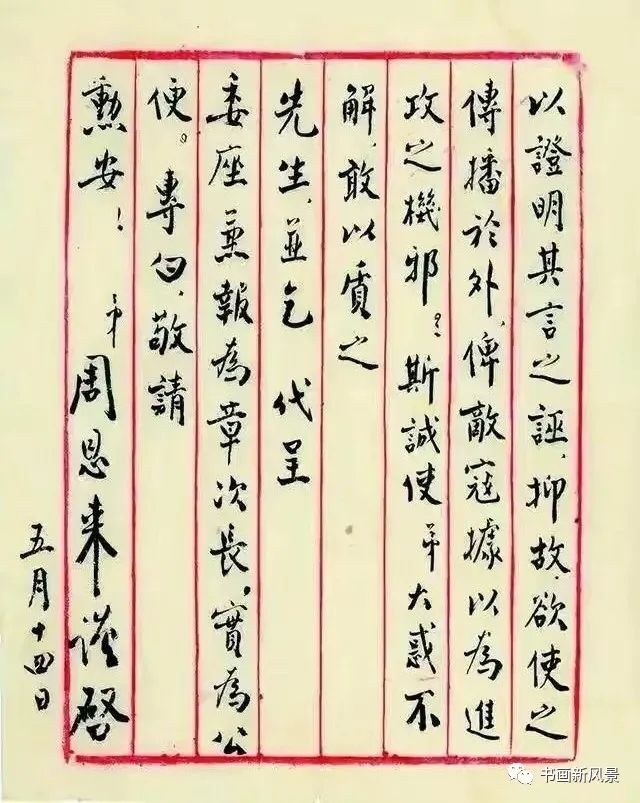 以證明其言之誣，抑故欲使之
傳播於外，俾敵寇據以為進
攻之機邪？斯誠使弟大惑不
解，敢以質之
先生，並乞代呈
委座兼報為章次長，實為公
便。專白，敬請
勳安！
弟周恩来謹啓
五月十四日
书画新风景